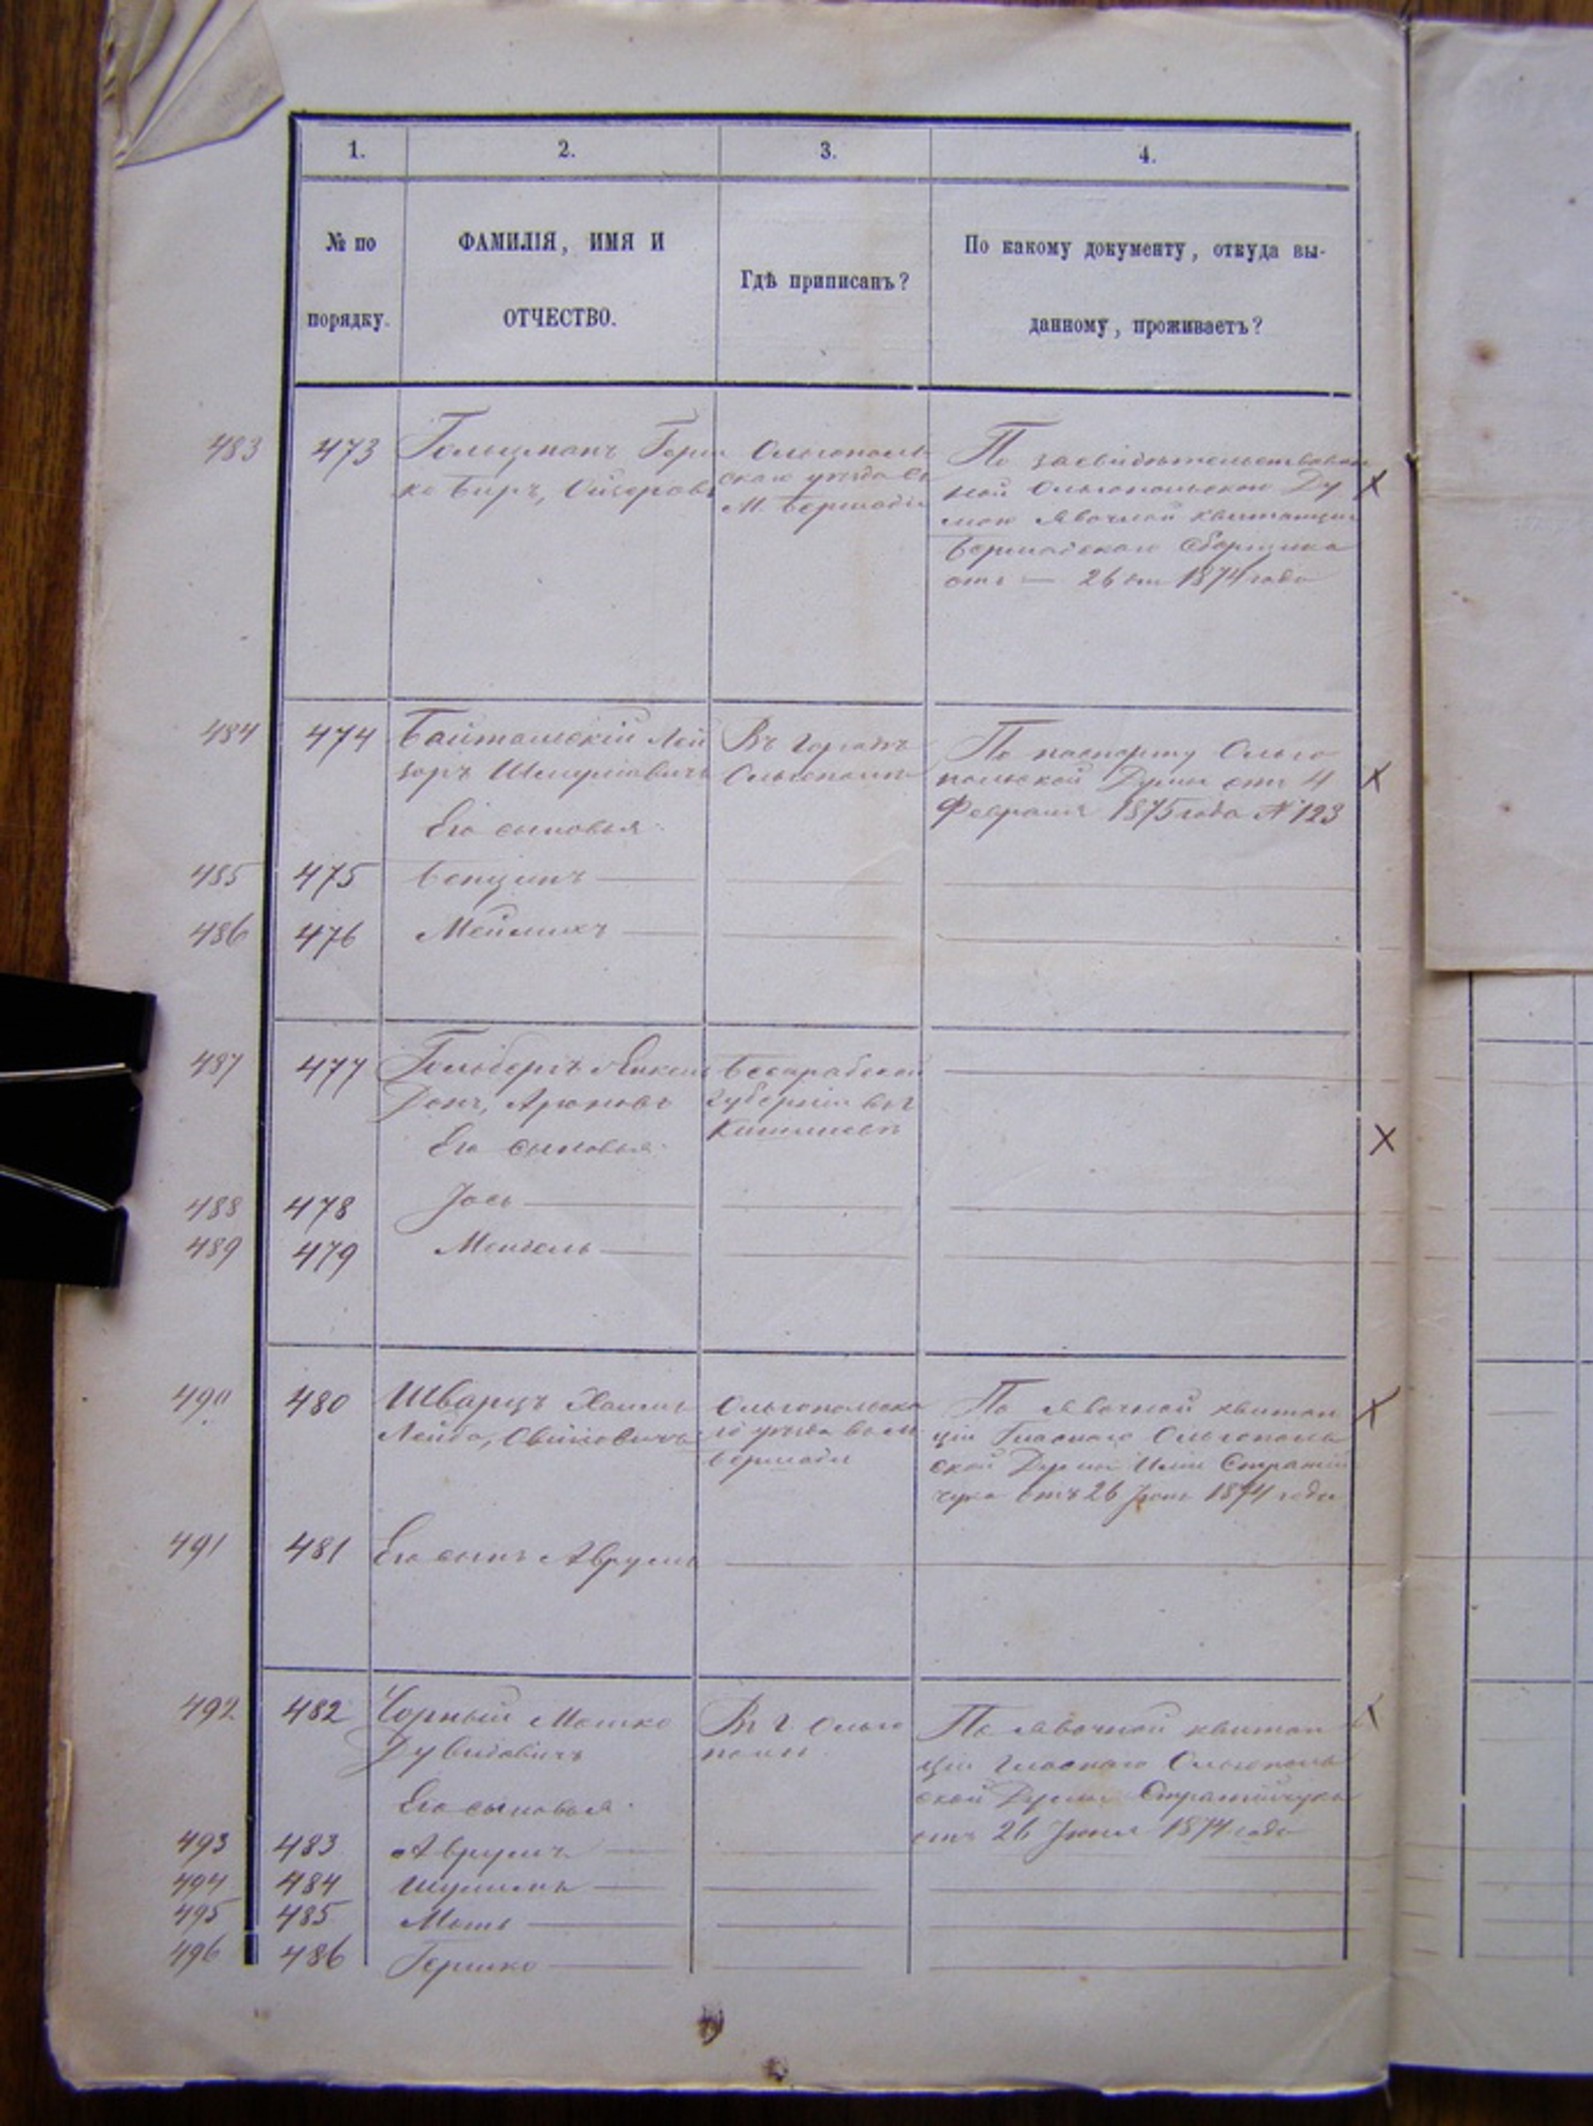 1. 2. 3. 4.
№ по
порядку.
ФАМИЛІЯ, ИМЯ И
ОТЧЕСТВО.
Гдѣ приписанъ?
По какому документу, откуда вы-
данному, проживаетъ?
483 473 Гольцманъ Герш
ко Беръ,
Ольгополь-
скаго уѣзда въ
М. Бершади
По засвидѣтельствован
ной Ольгопольскою Ду
мою явочной квитанціи
Бершадскаго Сборщика
отъ — 26 1874 года
484 474 Байтальскій Лей
зоръ Шмулевичъ
Въ городѣ
Ольгополѣ
По паспорту Ольго
польской Думы отъ 4
Февраля 1875 года № 123
Его сыновья:
485 475 Бенціонъ
486 476 Мейлихъ
487 477 Гольдбергъ Янкель
Ароновъ
Бессарабской
Губерніи въ г.
Кишиневѣ
Его сыновья:
488 478 Іось
489 479 Мендель
490 480 Шварцъ Хаимъ
Лейба,
Ольгопольска
го уѣзда въ м
Бершади
По явочной квитан
ціи Гласнаго Ольгополь
ской Думы Иліи Стратій
чука отъ 26 Іюня 1874 года
491 481 Его сынъ Аврумъ
492 482 Чорный Мошко
Дувидовичъ
Въ г. Ольго
полѣ
По явочной квитан
ціи гласнаго Ольгополь
ской Думы Стратійчука
отъ 26 Іюня 1874 года
Его сыновья:
493 483 Аврумъ
494 484 Шулимъ
495 485
496 486 Гершко